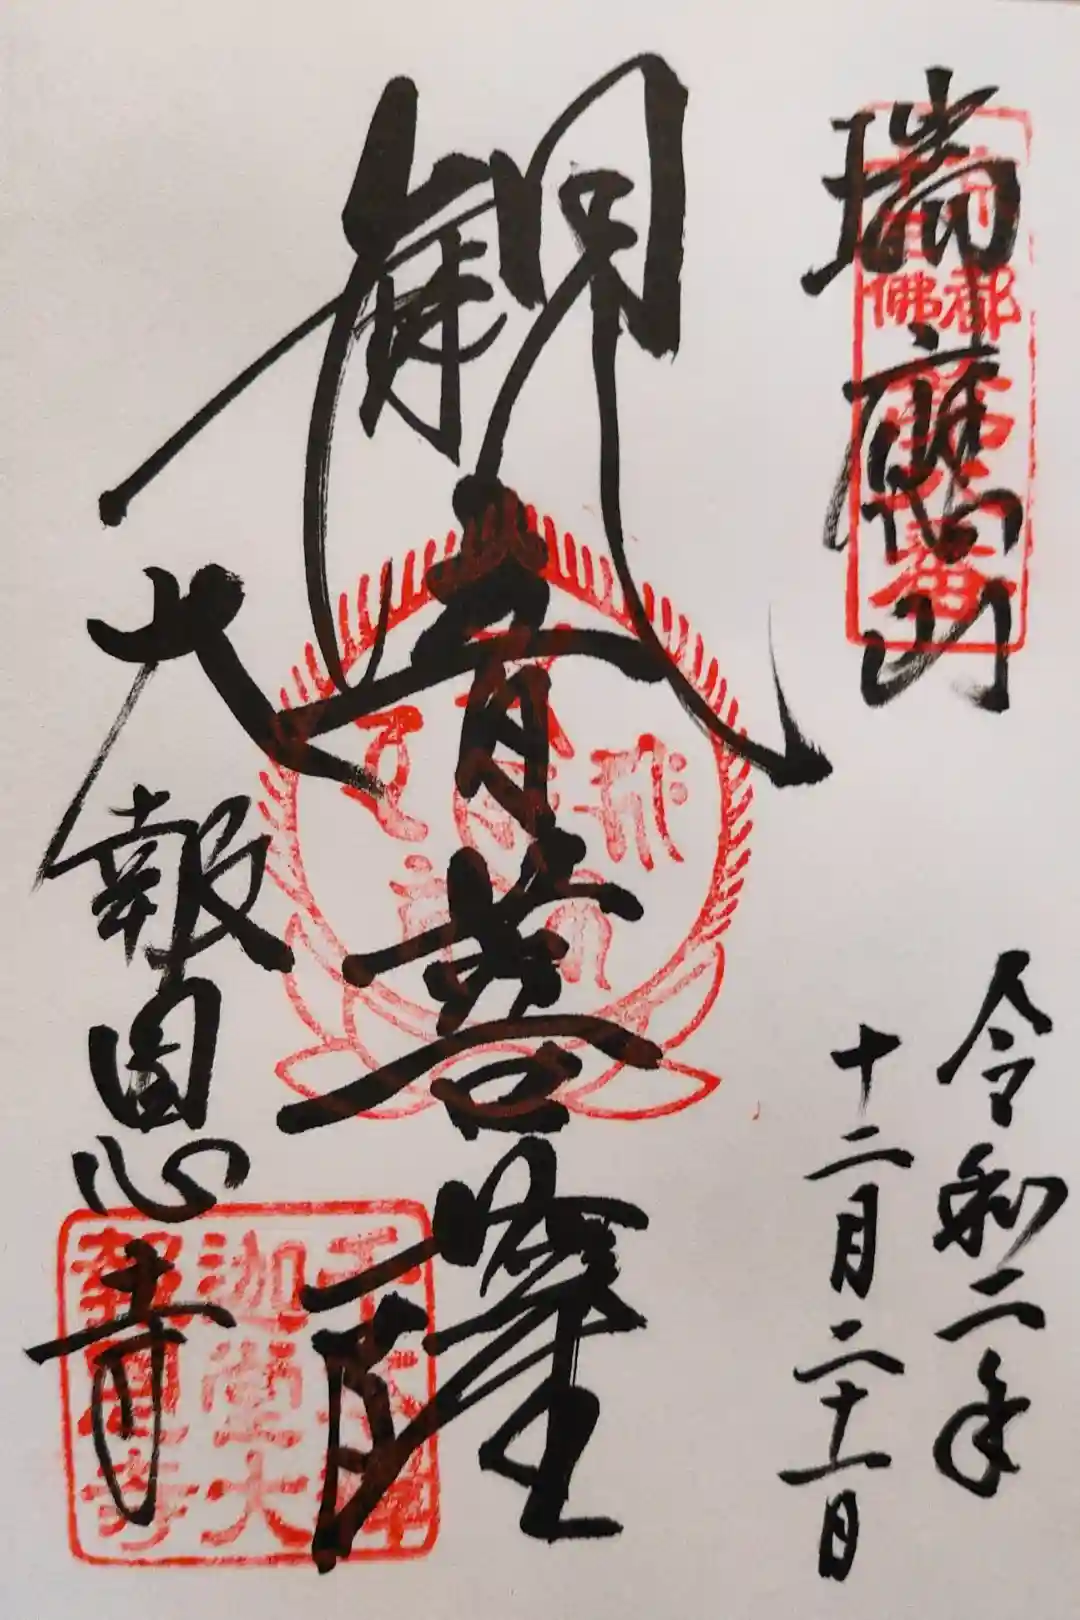 京都
十三佛
第八番
瑞應山
令和二年
十二月二十一日
観音菩薩
大報恩寺
千本釋
迦堂大
報恩寺